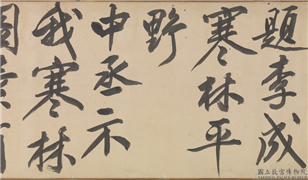 題李成
寒林平
野
中丞示
我寒林
國立故宮博物院